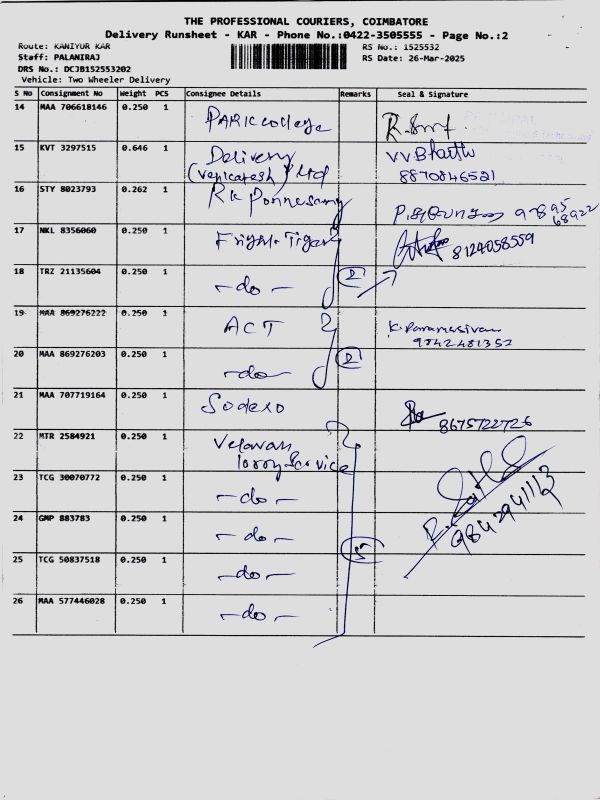 THE PROFESSIONAL COURIERS, COIMBATORE
Delivery Runsheet - KAR - Phone No.:0422-3505555 - Page No.:2
Route: KANIYUR KAR
RS No.: 1525532
Staff: PALANIRAJ
RS Date: 26-Mar-2025
DRS No.: DCJB152553202
Vehicle: Two Wheeler Delivery
S No Consignment No Weight PCS Consignee Details Remarks Seal & Signature
14 MAA 706618146 0.250 1 PARK college
15 KVT 3297515 0.646 1 Delivery VV Bharthi
(Venkatesh) 8870846521
16 STY 8023793 0.262 1 RK Ponnusamy 97895
68922
17 NKL 8356060 0.250 1 Fright Tiger 8124058559
18 TRZ 21135604 0.250 1 -do- 2
19 MAA 869276222 0.250 1 ACT K. Paramasivam
9842481352
20 MAA 869276203 0.250 1 -do- 2
21 MAA 707719164 0.250 1 Sodexo 8675722726
22 MTR 2584921 0.250 1 Velavan
lorry Service
23 TCG 30070772 0.250 1 -do-
24 GMP 883783 0.250 1 -do- 9842941113
25 TCG 50837518 0.250 1 -do- 5
26 MAA 577446028 0.250 1 -do-